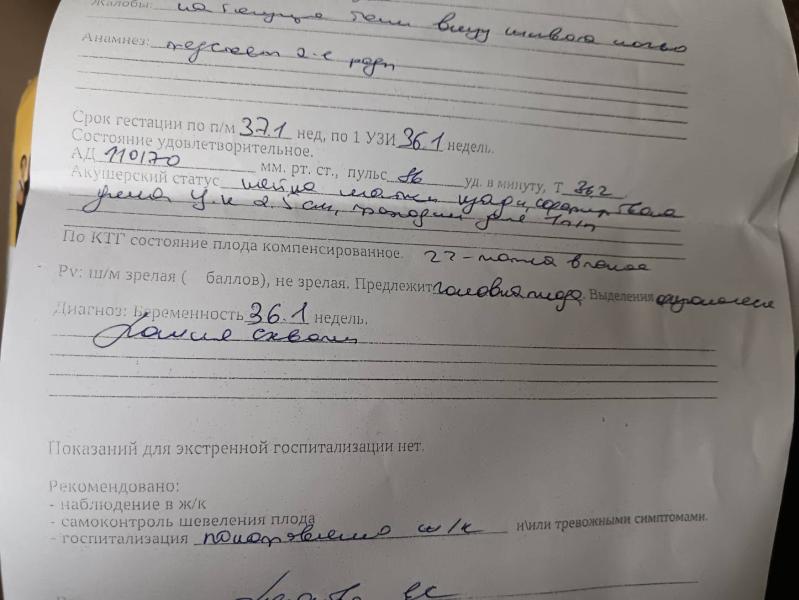 Жалобы: на тянущие боли внизу живота
Анамнез: предстоят 2-е роды
Срок гестации по п/м 37.1 нед, по 1 УЗИ 36.1 недель.
Состояние удовлетворительное.
АД 110/70 мм. рт. ст., пульс 86 уд. в минуту, Т 36,2
Акушерский статус шейка матки
2.5 см, для 1 п/п
По КТГ состояние плода компенсированное.
Pv: ш/м зрелая ( баллов), не зрелая. Предлежит головка плода. Выделения физиологические
Диагноз: Беременность 36.1 недель.
Ложные схватки
Показаний для экстренной госпитализации нет.
Рекомендовано:
- наблюдение в ж/к
- самоконтроль шевеления плода
- госпитализация по направлению ж/к и\или тревожными симптомами.